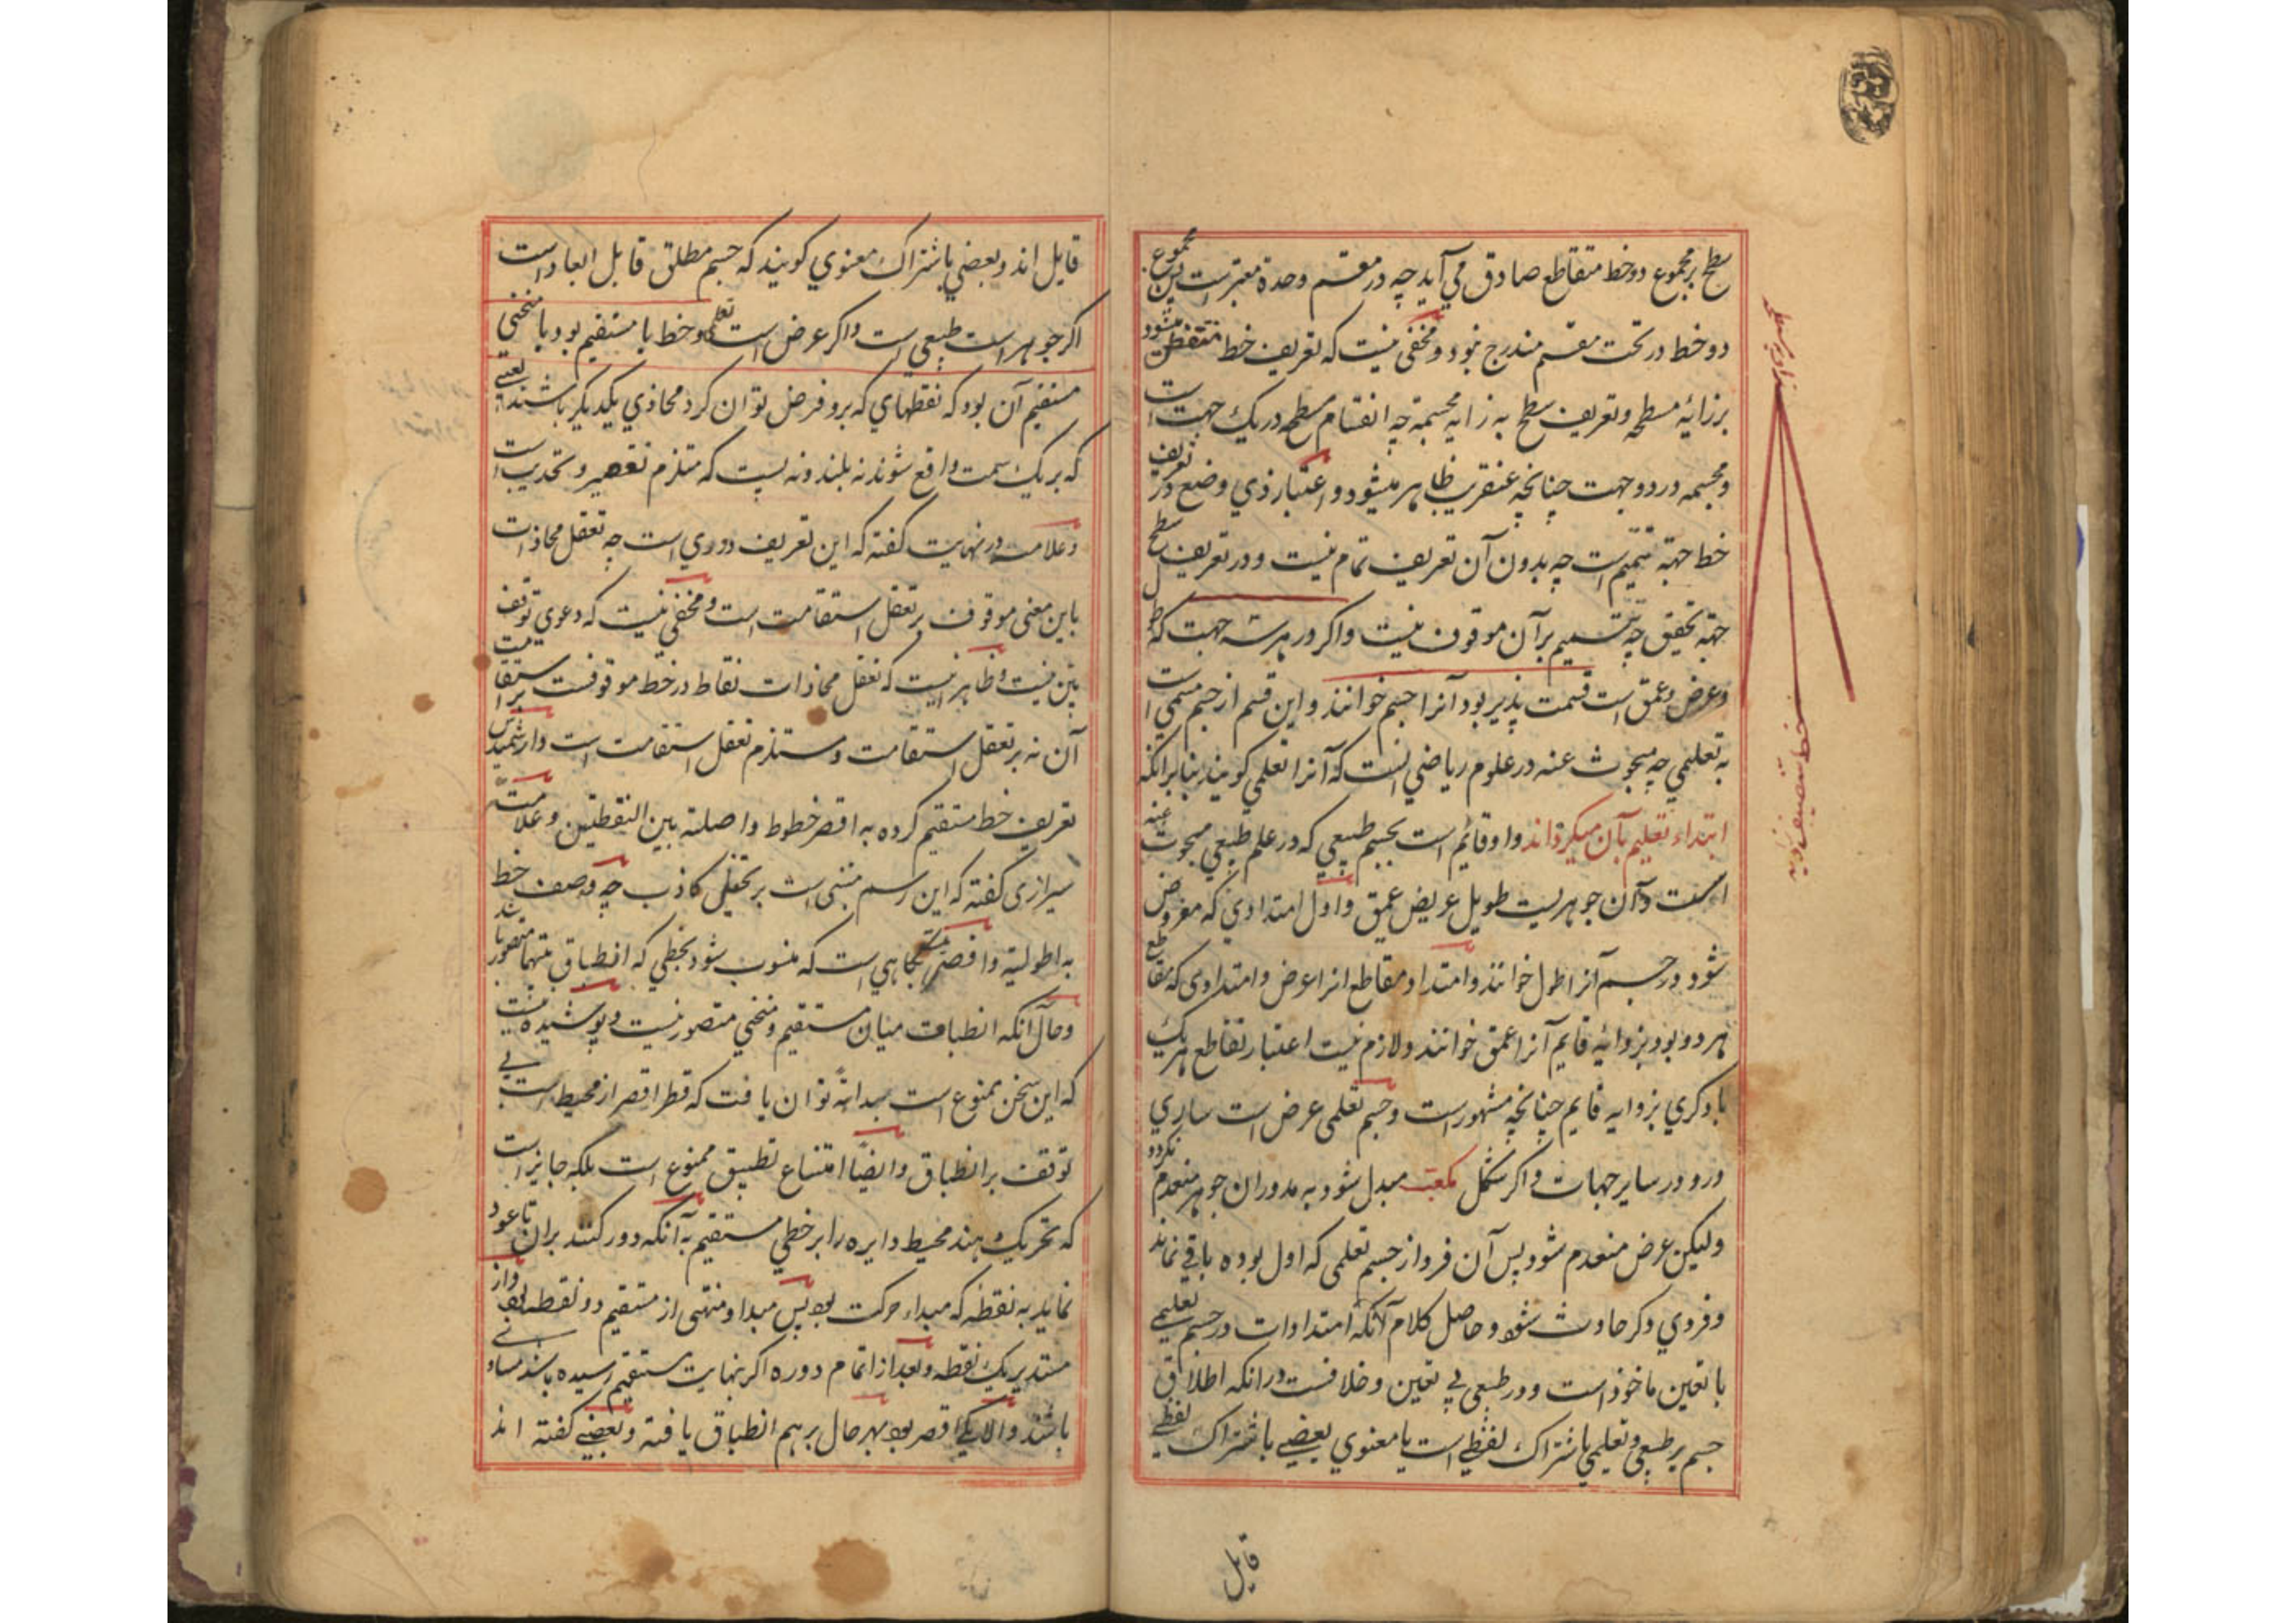 سطح بر مجموع دو خط متقاطع صادق می آید چه در مقسم وحدة معتبر است پس مجموع
دو خط در تحت مقسم مندرج نبود و مخفی نیست که تعریف خط منتقض میشود
بزاویهٔ مسطحه و تعریف سطح به زاویه مجسمة چه انقسام مسطحه در یک جهت است
و مجسمه در دو جهت چنانچه عنقریب ظاهر میشود و اعتبار ذی وضع در تعریف
خط جهة تتمیم است چه بدون آن تعریف تمام نیست و در تعریف سطح
جهة تحقیق چه تتمیم بر آن موقوف نیست و اگر در هر سه جهت که طول
و عرض و عمق است قسمت پذیر بود آنرا جسم خوانند و این قسم از جسم مسمی است
به تعلیمی چه مبحوث عنه در علوم ریاضی است که آنرا تعلیمی کویند بنابر آنکه
ابتداء تعلیم بآن میکرده‌اند و او قائم است بجسم طبیعی که در علم طبیعی مبحوث عنه
است و آن جوهریست طویل عریض عمیق و اول امتدادی که مفروض
شود در جسم آنرا طول خوانند و امتداد مقاطع انرا عرض و امتدادی که مقاطع
هر دو بود بزوایه قایم آنرا عمق خوانند و لازم نیست اعتبار تقاطع هر یک
با دکری بزوایه قایم چنانچه مشهور است و جسم تعلیمی عرض است ساری
درو در سایر جهات و اگر شکل مکعب مبدل شود به مدور آن جوهر منعدم نکردد
ولیکن عرض منعدم شود پس آن فرد از جسم تعلیمی که اول بوده باقی نماند
و فردی دکر حادث شود و حاصل کلام آنکه امتدادات در جسم تعلیمی
با تعین ماخوذ است و در طبیعی بی تعین و خلافست در انکه اطلاق
جسم بر طبیعی و تعلیمی باشتراک لفظی است یا معنوی بعضی باشتراک لفظی
قایل
زاویه مسطح
خط منصف زاویه
قایل اند و بعضی باشتراک معنوی کویند که جسم مطلق قابل ابعاد است
اگر جوهر است طبیعی است و اکر عرض است تعلیمی و خط یا مستقیم بود یا منحنی
مستقیم آن بود که نقطهای که برو فرض توان کرد محاذی یکدیکر باشند یعنی
که بر یک سمت واقع شوند نه بلند و نه پست که مستلزم تقعیر و تحدیب است
و علامه در نهایت کفته که این تعریف دوری است چه تعقل محاذات
باین معنی موقوف بر تعقل استقامت است و مخفی نیست که دعوی توقف
بین نیست و ظاهر اینست که تعقل محاذات نقاط در خط موقوفست بر استقامت
آن نه بر تعقل استقامت و مستلزم تعقل استقامت است و ارشمیدس
تعریف خط مستقیم کرده به اقصر خطوط واصلة بین النقطتین و علامه
شیرازی کفته که این رسم مبنی است بر تخیلی کاذب چه وصف خط
به اطولیة و اقصریة کاهی است که منسوب شود بخطی که انطباق بینهما متصور باشد
و حال آنکه انطباق میان مستقیم و منحنی متصور نیست و پوشیده نیست
که این سخن ممنوع است بداهة توان یافت که قطر اقصر از محیط است بی
توقف بر انطباق و ایضاً امتناع تطبیق ممنوع است بلکه جایز است
که تحریک دهند محیط دایره را بر خطی مستقیم به آنکه دور کنند بران تا عود
نماید به نقطه که مبداء حرکت بود پس مبدا و منتهی از مستقیم دو نقطه بود و از
مستدیر یک نقطه و بعد از اتمام دوره اکر بنهایت مستقیم رسیده باشد مساوی
باشند و الا یکی اقصر بود بهر حال بر هم انطباق یافته و بعضی کفته اند